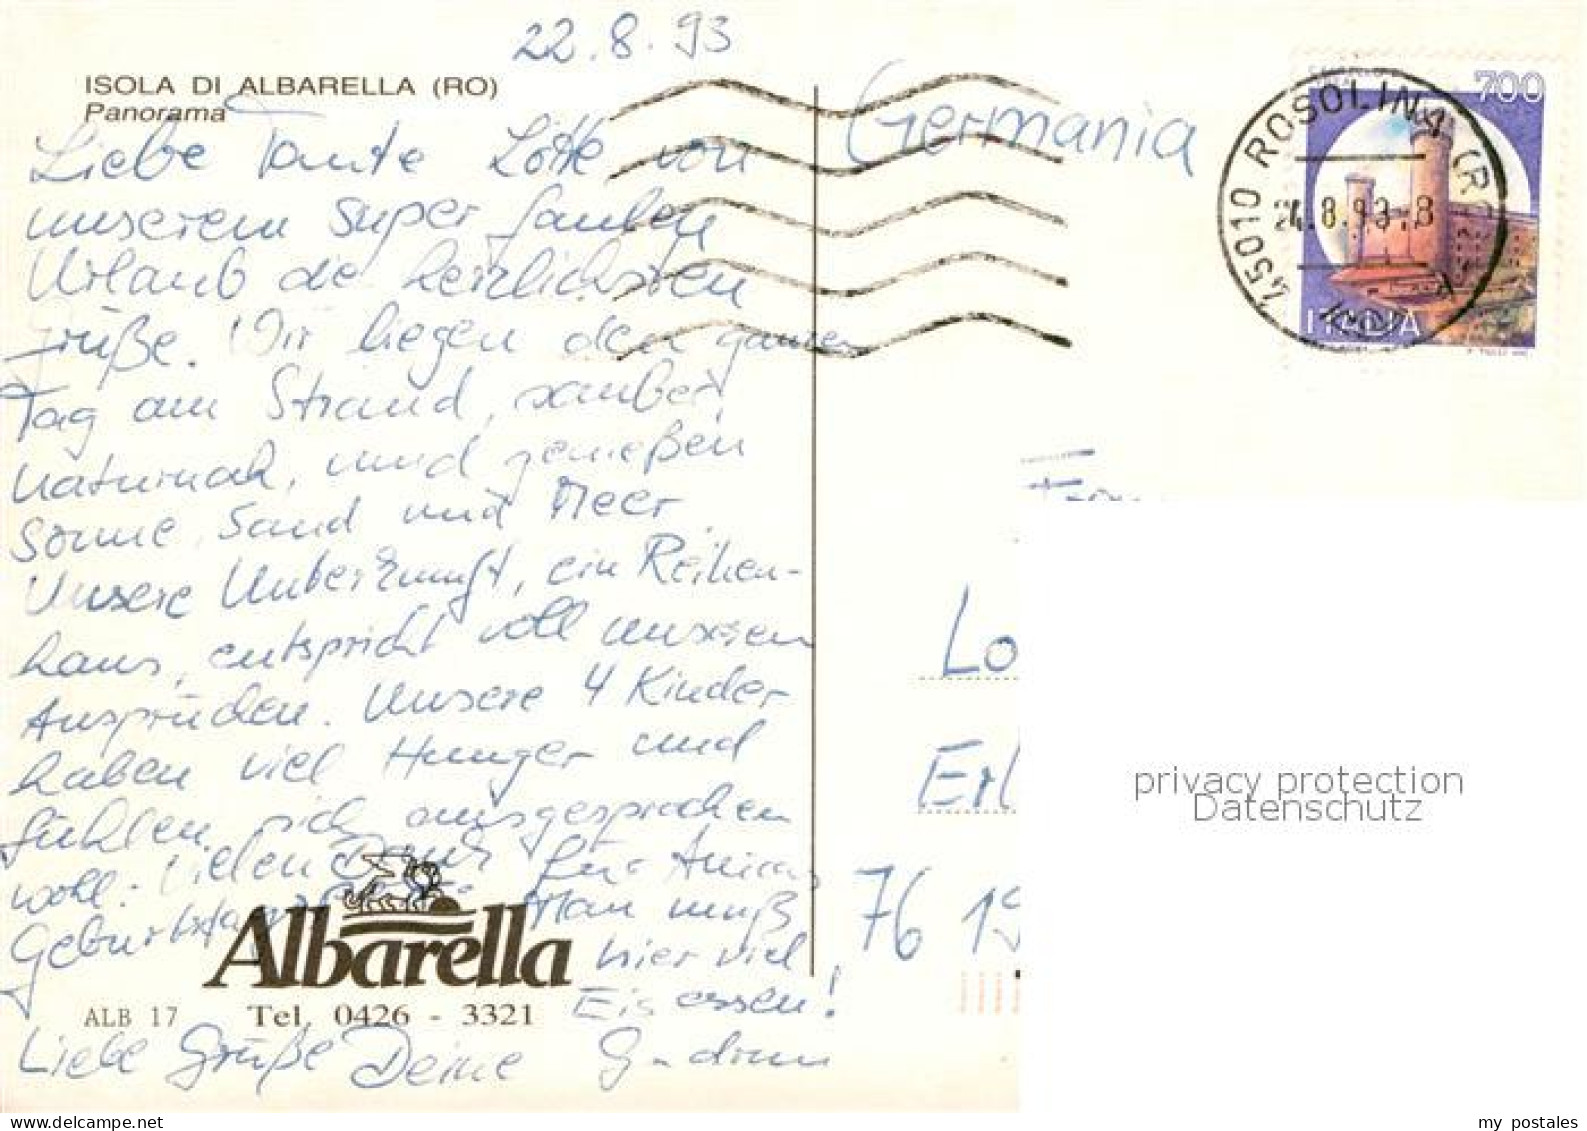 22.8.93
ISOLA DI ALBARELLA (RO)
Panorama
Liebe Tante Lotte, von
unserem super faulen
Urlaub die herzlichsten
Grüße. Wir liegen den ganzen
Tag am Strand, sauber,
naturnah, und genießen
Sonne, Sand und Meer.
Unsere Unterkunft, ein Reihen-
haus, entspricht voll unseren
Ansprüchen. Unsere 4 Kinder
haben viel Hunger und
fühlen sich ausgesprochen
wohl. Vielen Dank für
Geburtstags Man muß
hier viel
Eis essen!
Liebe Grüße Deine
Albarella
ALB 17 Tel. 0426 - 3321
Germania
700
ITALIA
45010 ROSOLINA (RO)
24.8.93.8
Lo
Erl
76 19
privacy protection
Datenschutz
my postales